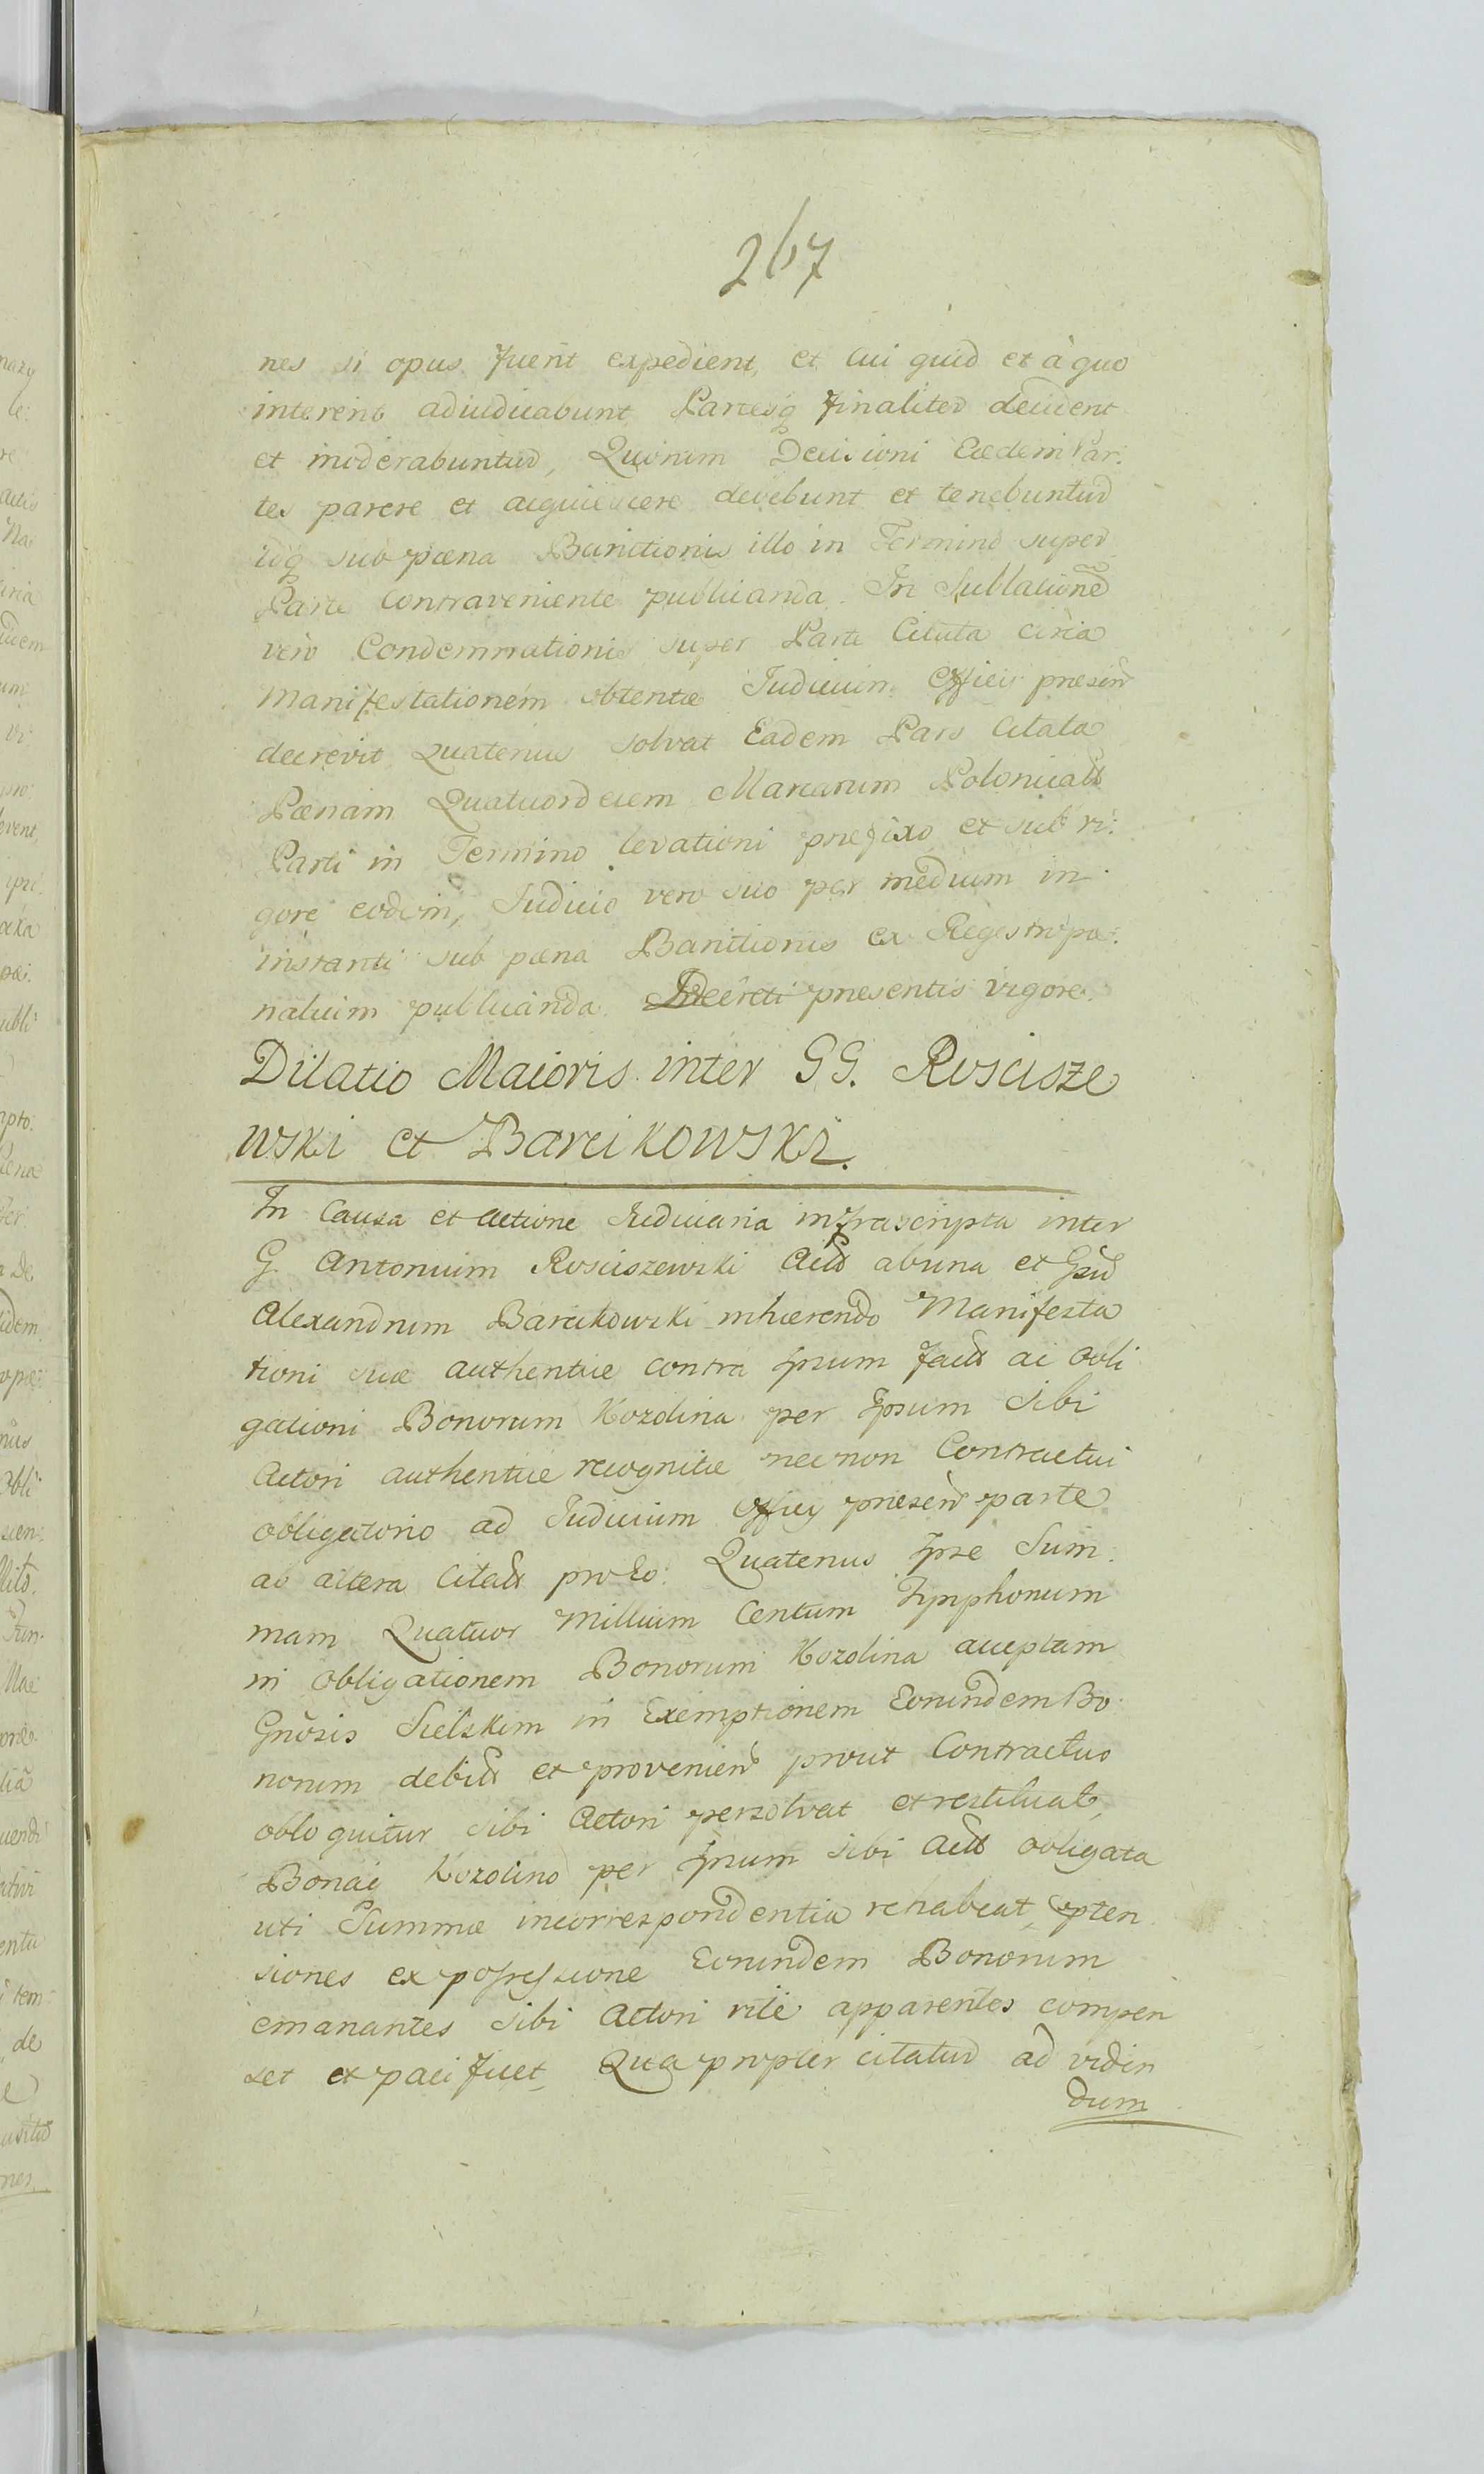 267
nes si opus fuerit expedient, et cui quid et à quo
intererit adiudicabunt Partesq̃ finaliter decident
et moderabuntur, Quorum Decisioni Eædem Par:
tes parere et acquiescere debebunt et tenebuntur
idq̃ sub pæna Banitionis illo in Termino super
Parte Contraveniente publicanda. In Sublationẽ
vero Condemnationis super Parte Citata circa
Manifestationem obtentæ Judicium Officij præsen
decrevit Quatenus solvat Eadem Pars Citata
Pænam Quatuordecem Marcarum Polonical
Parti in Termino levationi præfixo et sub ri:
gore eodem, Judicio vero suo per medium in
instanti sub pæna Banitionis ex Regestro pæ:
nalium publicanda. Decreti presentis vigore.
Dilatio Maioris inter GG. Roscisze
wski et Barcikowski.
In Causa et actione Judiciaria infrascripta inter
G. Antonium Rosciszewski Act abuna et Gsu
Alexandrum Barcikowski inhærendo Manifesta
tioni suæ authenticæ contra Ipsum fact ac obli
gationi Bonorum Kozolina per Ipsum Sibi
Actori authenticæ recognitæ necnon Contractui
obligatorio ad Judicium Officij præsen parte
ab altera Citat pro Eo. Quatenus Ipse Sum:
mam Quatuor Millium Centum Tymphonum
in obligationem Bonorum Kozolina acceptam
Gnõsis Sielskim in Exemptionem Eorundem Bo
norum debit et provenien prout Contractus
obloquitur sibi Actori persolvat et restituat,
Bonaq̃ Kozolino per Ipsum sibi Act obligata
uti Summæ incorrespondentia rehabeat, prten
siones ex possessione Eorundem Bonorum
emanantes sibi Actori rite apparentes compen
set et pacificet, Qua propter citatur ad viden
dum